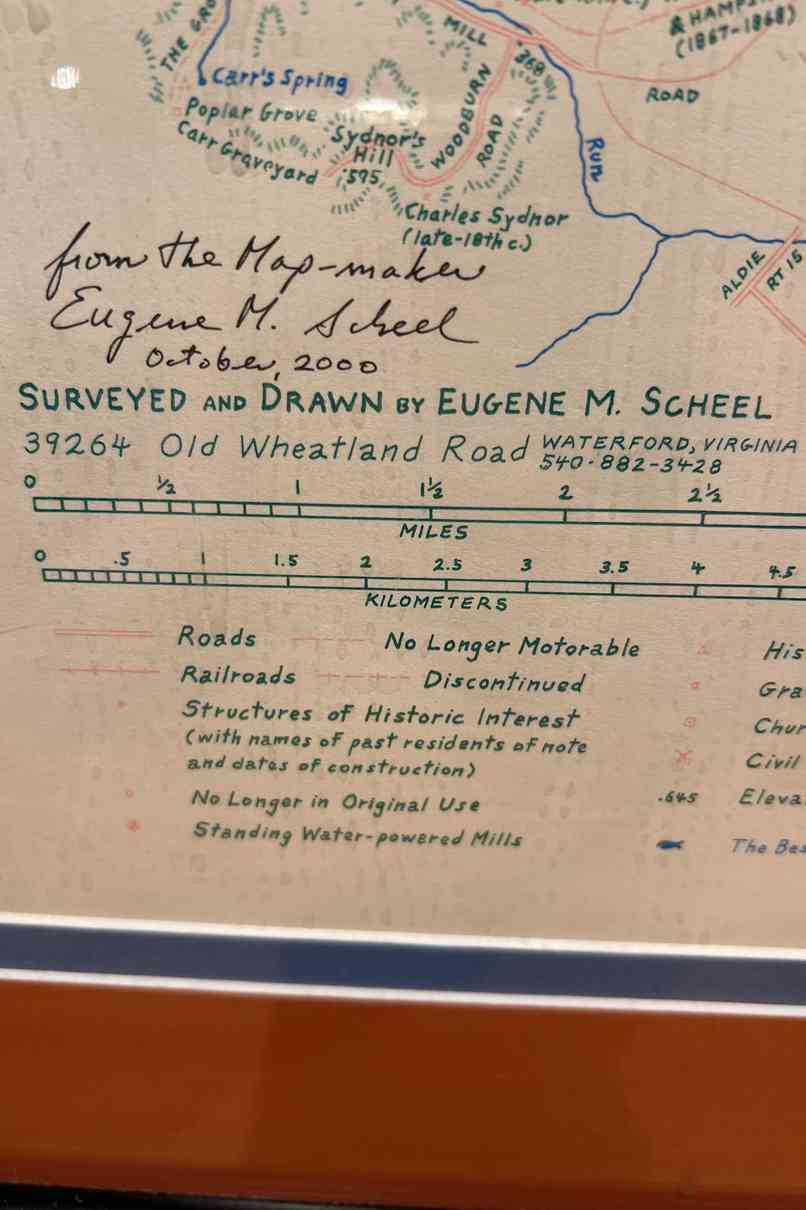 THE GRO
MILL
& HAMPS
(1867-1868)
.368
Carr's Spring
WOODBURN
ROAD
ROAD
Poplar Grove
Carr Graveyard
Sydnor's
Hill
.595
Run
Charles Sydnor
(late-18th c.)
ALDIE
RT 15
from the Map-maker
Eugene M. Scheel
October, 2000
SURVEYED AND DRAWN BY EUGENE M. SCHEEL
39264 Old Wheatland Road WATERFORD, VIRGINIA
540-882-3428
0 ½ 1 1½ 2 2½
MILES
0 .5 1 1.5 2 2.5 3 3.5 4 4.5
KILOMETERS
Roads No Longer Motorable His
Railroads Discontinued Gra
Structures of Historic Interest Chur
(with names of past residents of note
and dates of construction) Civil
No Longer in Original Use .645 Eleva
Standing Water-powered Mills The Bes